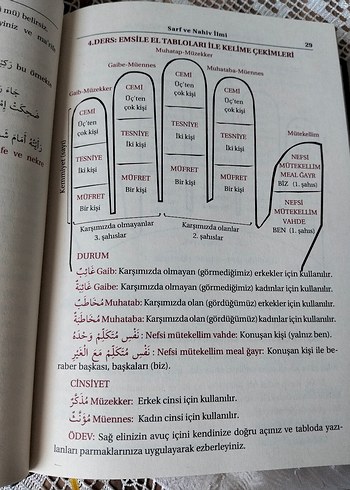 Sarf ve Nahiv İlmi
29
4.DERS: EMSİLE EL TABLOLARI İLE KELİME ÇEKİMLERİ
Muharap-Müzekker
Gaibe-Müennes
Muhataba-Müennes
Gaib-Müzekker
Mütekellim
Kemmiyet (sayı)
CEMİ
Üç'ten
çok kişi
TESNİYE
İki kişi
MÜFRET
Bir kişi
CEMİ
Üç'ten
çok kişi
TESNİYE
İki kişi
MÜFRET
Bir kişi
CEMİ
Üç'ten
çok kişi
TESNİYE
İki kişi
MÜFRET
Bir kişi
CEMİ
Üç'ten
çok kişi
TESNİYE
İki kişi
MÜFRET
Bir kişi
NEFSİ
MÜTEKELLİM
MEAL ĞAYR
BİZ (1. şahıs)
NEFSİ
MÜTEKELLİM
VAHDE
BEN (1. şahıs)
Karşımızda olmayanlar
3. şahıslar
Karşımızda olanlar
2. şahıslar
DURUM
غَائِبٌ Gaib: Karşımızda olmayan (görmediğimiz) erkekler için kullanılır.
غَائِبَةٌ Gaibe: Karşımızda olmayan (görmediğimiz) kadınlar için kullanılır.
مُخَاطَبٌ Muhatab: Karşımızda olan (gördüğümüz) erkekler için kullanılır.
مُخَاطَبَةٌ Muhataba: Karşımızda olan (gördüğümüz) kadınlar için kullanılır.
نَفْسِ مُتَكَلِّمْ وَحْدَهُ : Nefsi mütekellim vahde: Konuşan kişi (yalnız ben).
نَفْسِ مُتَكَلِّمْ مَعَ الْغَيْرِ : Nefsi mütekellim meal ğayr: Konuşan kişi ile be-
raber başkası, başkaları (biz).
CİNSİYET
مُذَكَّرٌ Müzekker: Erkek cinsi için kullanılır.
مُؤَنَّثٌ Müennes: Kadın cinsi için kullanılır.
ÖDEV: Sağ elinizin avuç içini kendinize doğru açınız ve tabloda yazı-
lanları parmaklarınıza uygulayarak ezberleyiniz.